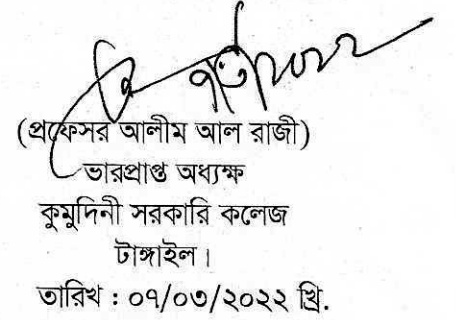 (প্রফেসর আলীম আল রাজী)
ভারপ্রাপ্ত অধ্যক্ষ
কুমুদিনী সরকারি কলেজ
টাঙ্গাইল।
তারিখ : ০৭/০৩/২০২২ খ্রি.